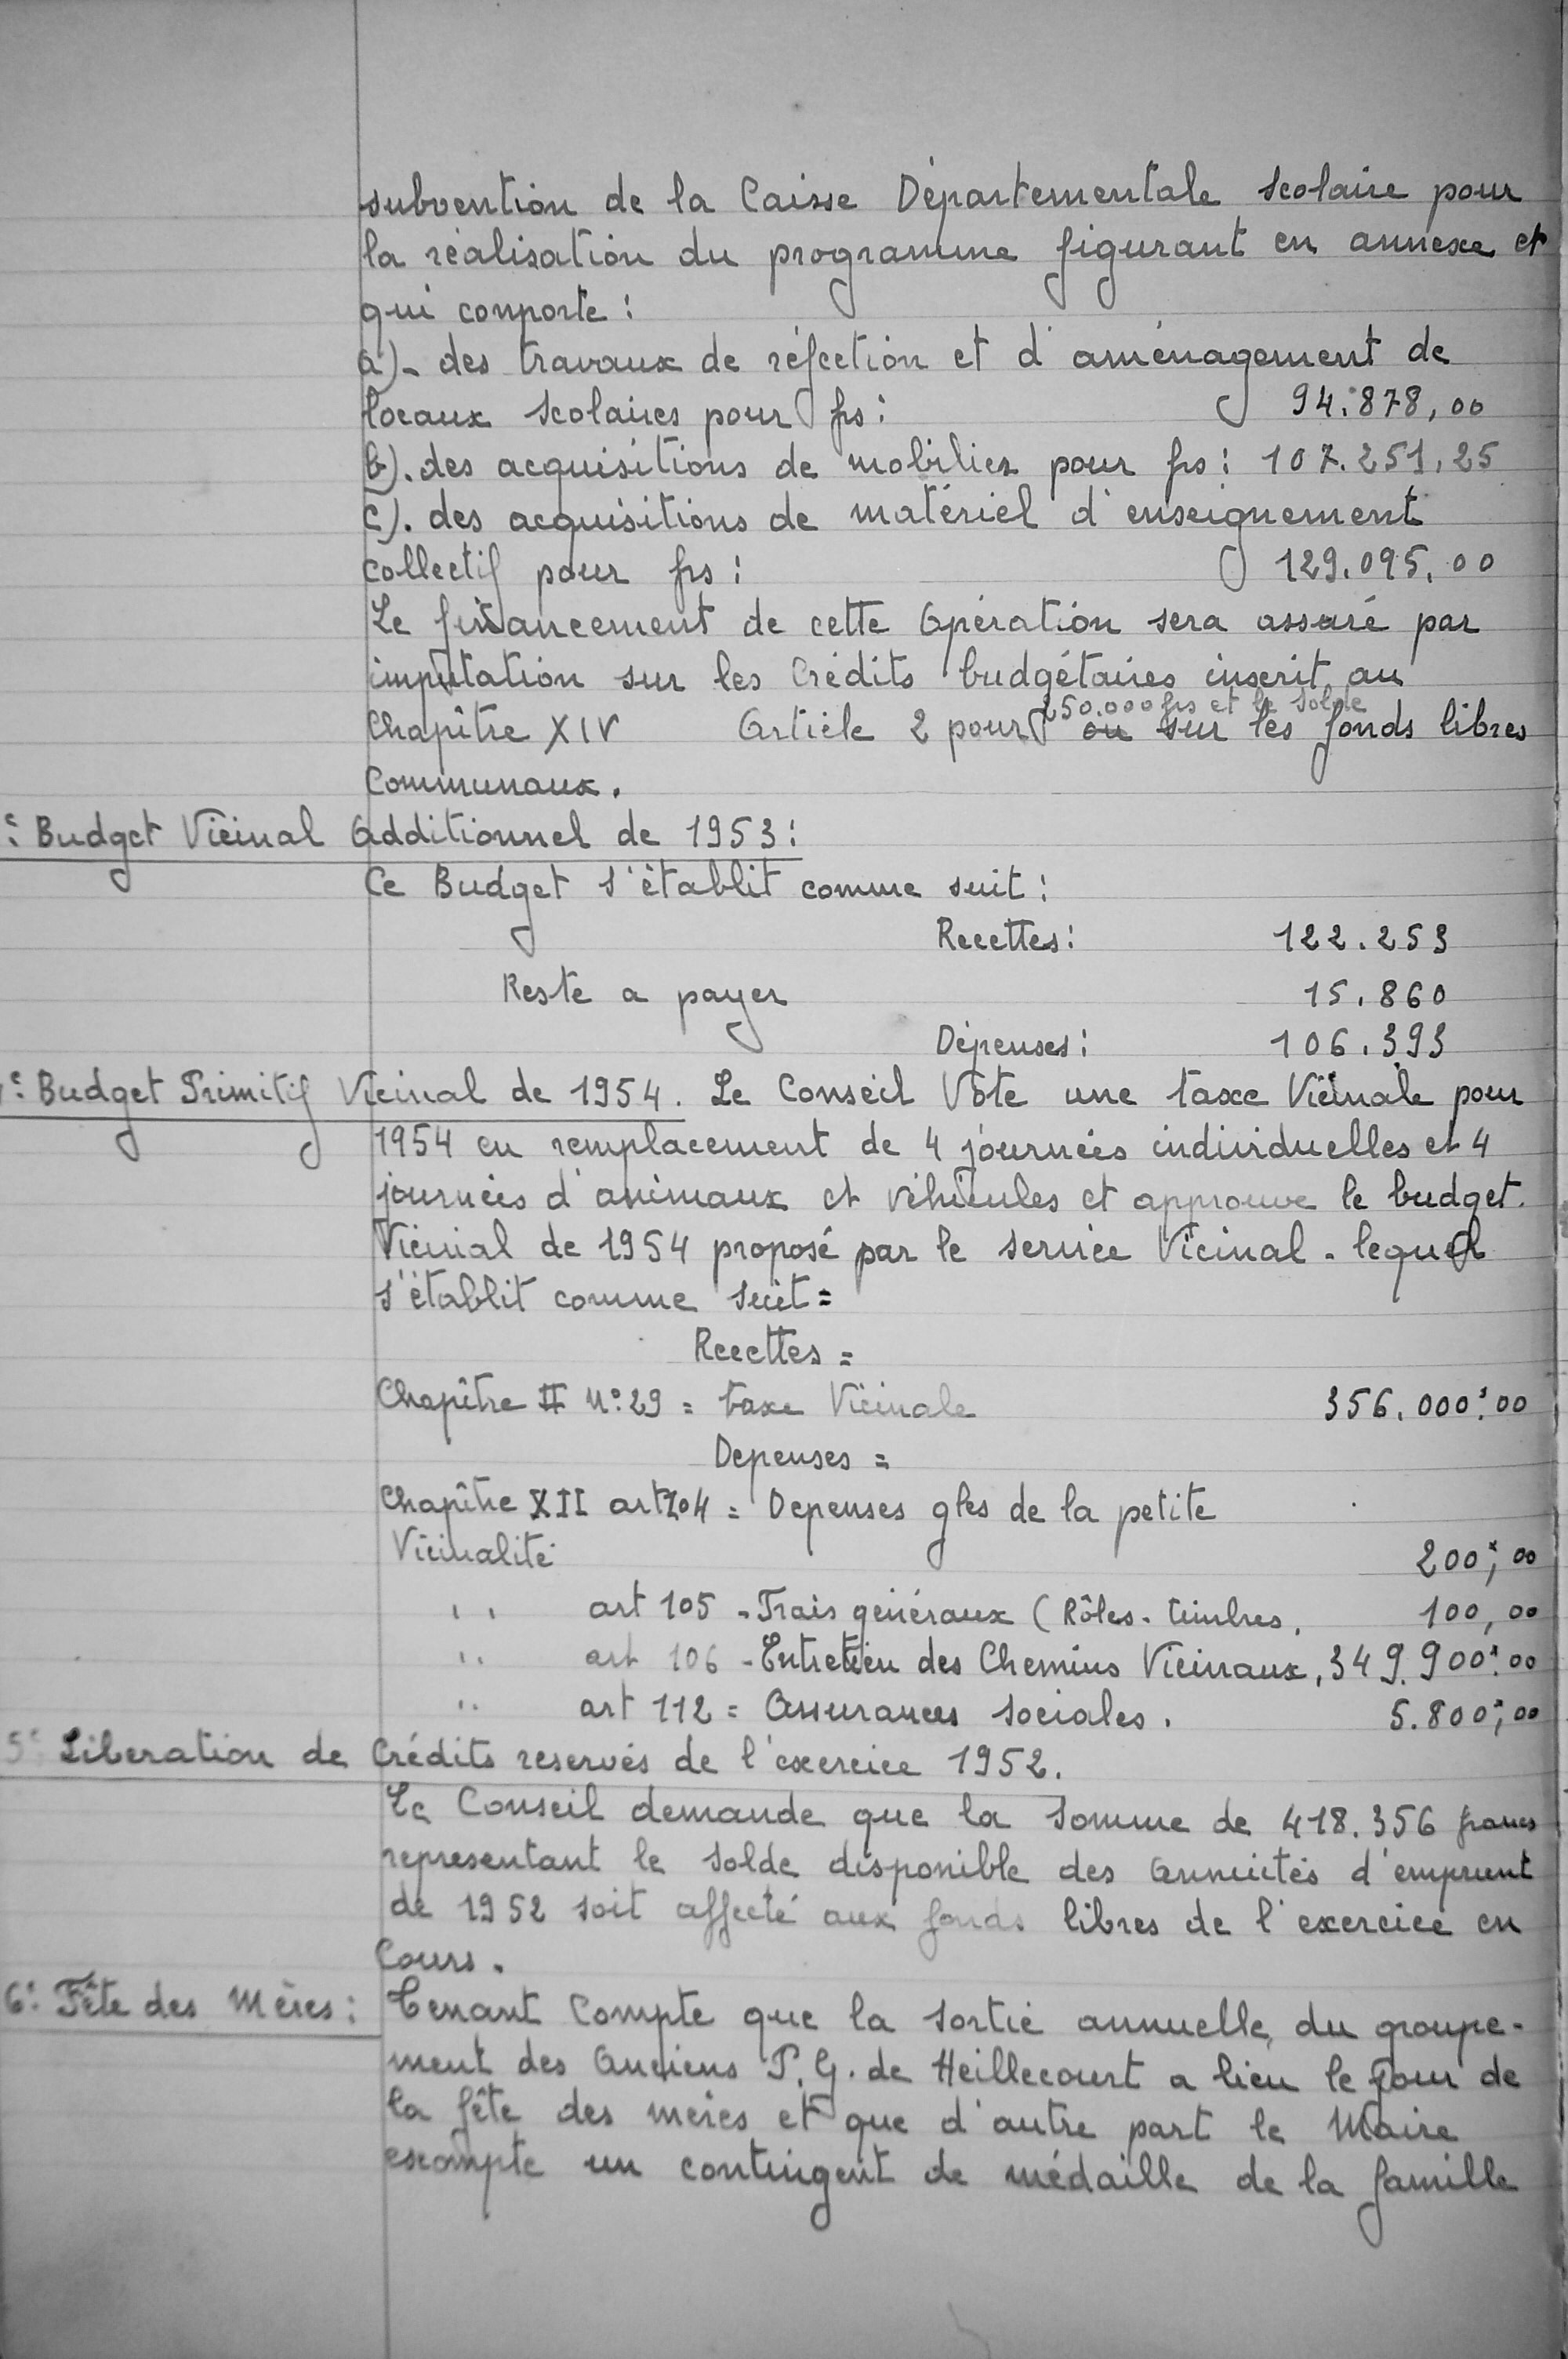 subvention de la Caisse Départementale scolaire pour
la réalisation du programme figurant en annexe et
qui comporte :
a)- des travaux de réfection et d'aménagement de
locaux scolaires pour frs : 94.878,00
b). des acquisitions de mobilier pour frs : 107.251,25
c). des acquisitions de matériel d'enseignement
collectif pour frs : 129.095,00
Le financement de cette Opération sera assuré par
imputation sur les Crédits budgétaires inscrit au
250.000 frs et le solde
Chapître XIV Article 2 pour ou sur les fonds libres
Communaux.
: Budget Vicinal Additionnel de 1953 :
Ce Budget s'établit comme suit :
Recettes : 122.253
Reste a payer 15.860
Dépenses : 106.393
: Budget Primitif Vicinal de 1954. Le Conseil Vote une taxe Vicinale pour
1954 en remplacement de 4 journées individuelles et 4
journées d'animaux et véhicules et approuve le budget.
Vicinial de 1954 proposé par le service Vicinal - lequel
s'établit comme suit =
Recettes =
Chapître II N° 29 = taxe Vicinale 356.000,00
Depenses =
Chapître XII art 104 = Depenses gles de la petite
Vicinalité 200,00
'' art 105 - Frais généraux (Rôles - timbres. 100,00
'' art 106 - Entretien des Chemins Vicinaux, 349.900,00
'' art 112 = Assurances sociales. 5.800,00
5° Liberation de Crédits reservés de l'exercice 1952.
Le Conseil demande que la somme de 418.356 francs
representant le solde disponible des Annuités d'emprunt
de 1952 soit affecté aux fonds libres de l'exercice en
Cours.
6° Fête des Mères : Tenant Compte que la sortie annuelle du groupe-
ment des Anciens P.G. de Heillecourt a lieu le jour de
la fête des mères et que d'autre part le Maire
escompte un contingent de médaille de la famille